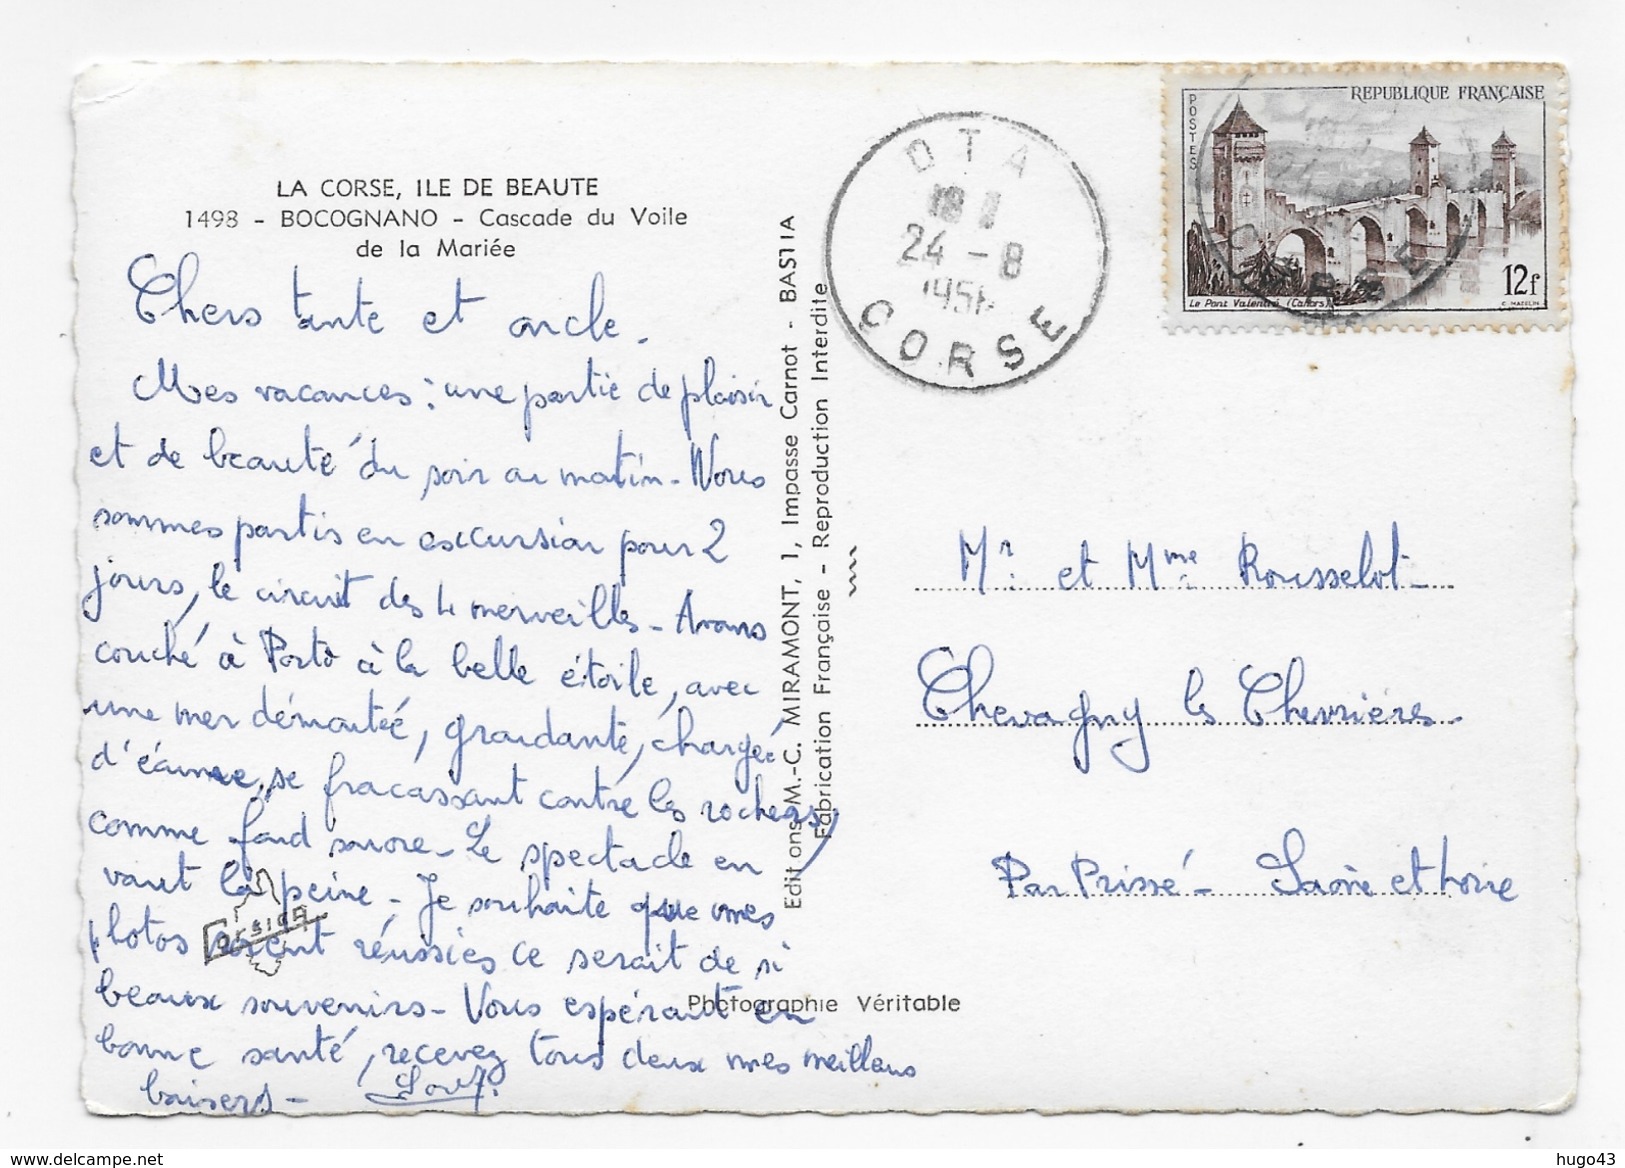 LA CORSE, ILE DE BEAUTE
1498 - BOCOGNANO - Cascade du Voile
de la Mariée
Chers tante et oncle.
Mes vacances : une partie de plaisir
et de beauté du soir au matin - Nous
sommes partis en excursion pour 2
jours, le circuit des 4 merveilles - Avons
couché à Porto à la belle étoile, avec
une mer démontée, grondante, chargée
d'écume, se fracassant contre les rochers,
comme fond sonore - Le spectacle en
vaut la peine - Je souhaite que mes
photos soient réussies ce serait de si
beaux souvenirs - Vous espérant en
bonne santé, recevez tous deux mes meilleurs
baisers -
Editions M.-C. MIRAMONT, 1, Impasse Carnot - BASTIA
Fabrication Française - Reproduction Interdite
Photographie Véritable
OTA
24 - 8
CORSE
POSTES
REPUBLIQUE FRANÇAISE
12f
Le Pont Valentré (Cahors)
C. MAZELIN
CORSE
Mr. et Mme Rousselot -
Chevagny les Chevrières -
Par Prissé - Saône et Loire
hugo43
delcampe.net